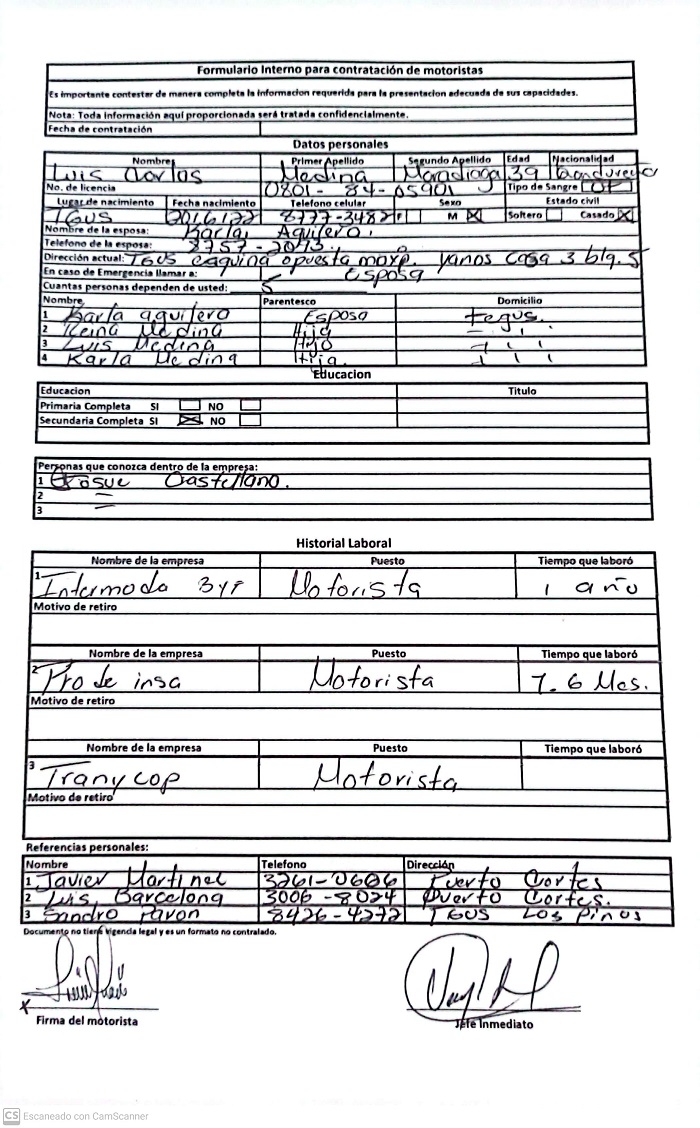 Formulario Interno para contratación de motoristas
Es importante contestar de manera completa la informacion requerida para la presentacion adecuada de sus capacidades.
Nota: Toda información aquí proporcionada será tratada confidencialmente.
Fecha de contratación
Datos personales
Nombre Primer Apellido Segundo Apellido Edad Nacionalidad
Luis Carlos Medina Maradiaga 39
No. de licencia 0801-84-05901 Tipo de Sangre
Lugar de nacimiento Fecha nacimiento Telefono celular Sexo Estado civil
TGUS 8777-3482 F M X Soltero Casado X
Nombre de la esposa: Karla Aguilero.
Telefono de la esposa: 8757-2073.
Dirección actual: TGUS esquina opuesta yanos casa 3 blq. 5
En caso de Emergencia llamar a: Esposa
Cuantas personas dependen de usted: 5
Nombre Parentesco Domicilio
1 Karla aguilero Esposa tegus.
2 Reina Medina Hija
3 Luis Medina Hijo
4 Karla Medina Hija.
Educacion
Educacion Titulo
Primaria Completa SI NO
Secundaria Completa SI X NO
Personas que conozca dentro de la empresa:
1 Josue Castellano.
2
3
Historial Laboral
Nombre de la empresa Puesto Tiempo que laboró
1 Intermoda Motorista 1 año
Motivo de retiro
Nombre de la empresa Puesto Tiempo que laboró
2 Pro de insa Motorista 7.6 Mes.
Motivo de retiro
Nombre de la empresa Puesto Tiempo que laboró
3 Tranycop Motorista
Motivo de retiro
Referencias personales:
Nombre Telefono Dirección
1 Javier Martinel 3261-0606 Puerto Cortes
2 Luis, Barcelona 3006-8024 Puerto Cortes.
3 Sandro Pavon 8426-4272 TGUS Los Pinos
Documento no tiene vigencia legal y es un formato no contralado.
x
Firma del motorista Jefe Inmediato
CS Escaneado con CamScanner